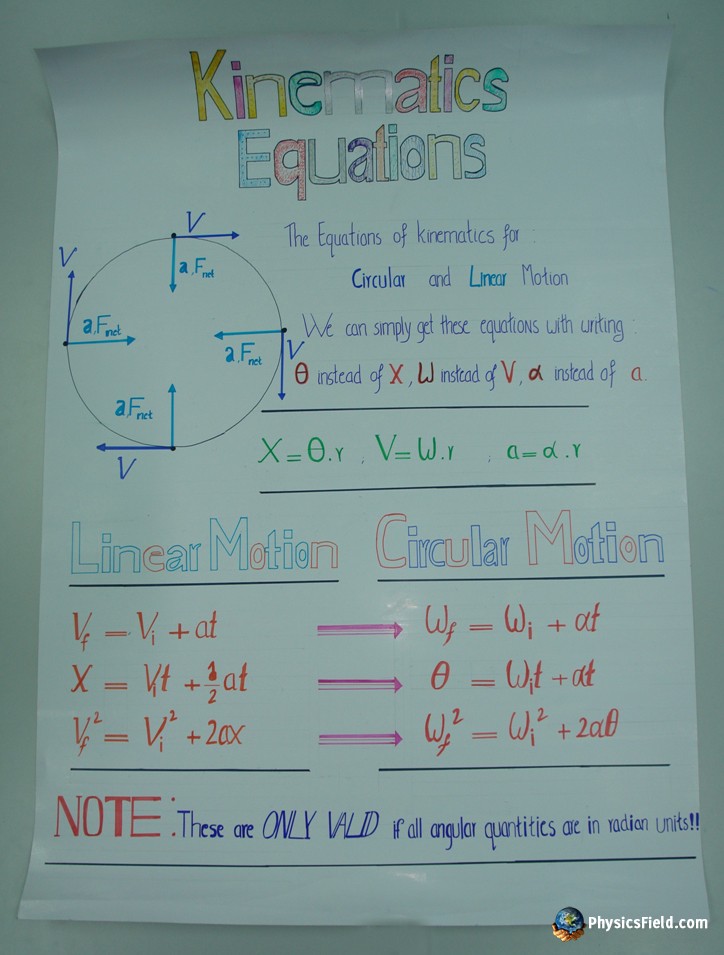 Kinematics
Equations
V
V
a,Fnet
a,Fnet
a,Fnet
V
a,Fnet
V
The Equations of kinematics for :
Circular and Linear Motion
We can simply get these equations with writing :
θ instead of X, ω instead of V, α instead of a.
X = θ.r , V = ω.r , a = α.r
Linear Motion Circular Motion
Vf = Vi + at ⟹ ωf = ωi + αt
X = Vit + 1/2 at ⟹ θ = ωit + αt
Vf² = Vi² + 2ax ⟹ ωf² = ωi² + 2αθ
NOTE: These are ONLY VALID if all angular quantities are in radian units!!
PhysicsField.com